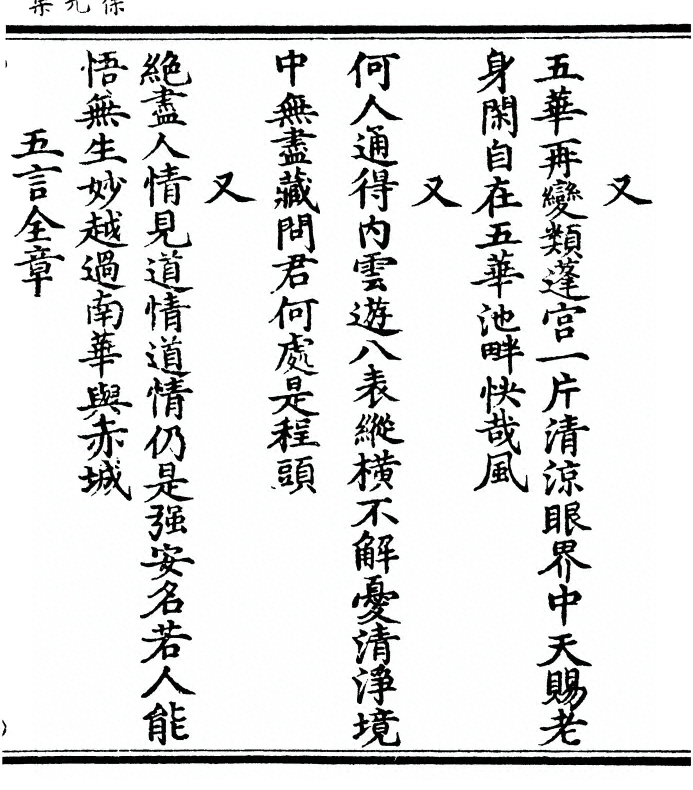 又
五華再變類蓬宫一片清涼眼界中天賜老
身閑自在五華池畔快哉風
又
何人通得内雲遊八表縱横不解憂清淨境
中無盡藏問君何處是程頭
又
絶盡人情見道情道情仍是强安名若人能
悟無生妙越過南華與赤城
五言全章